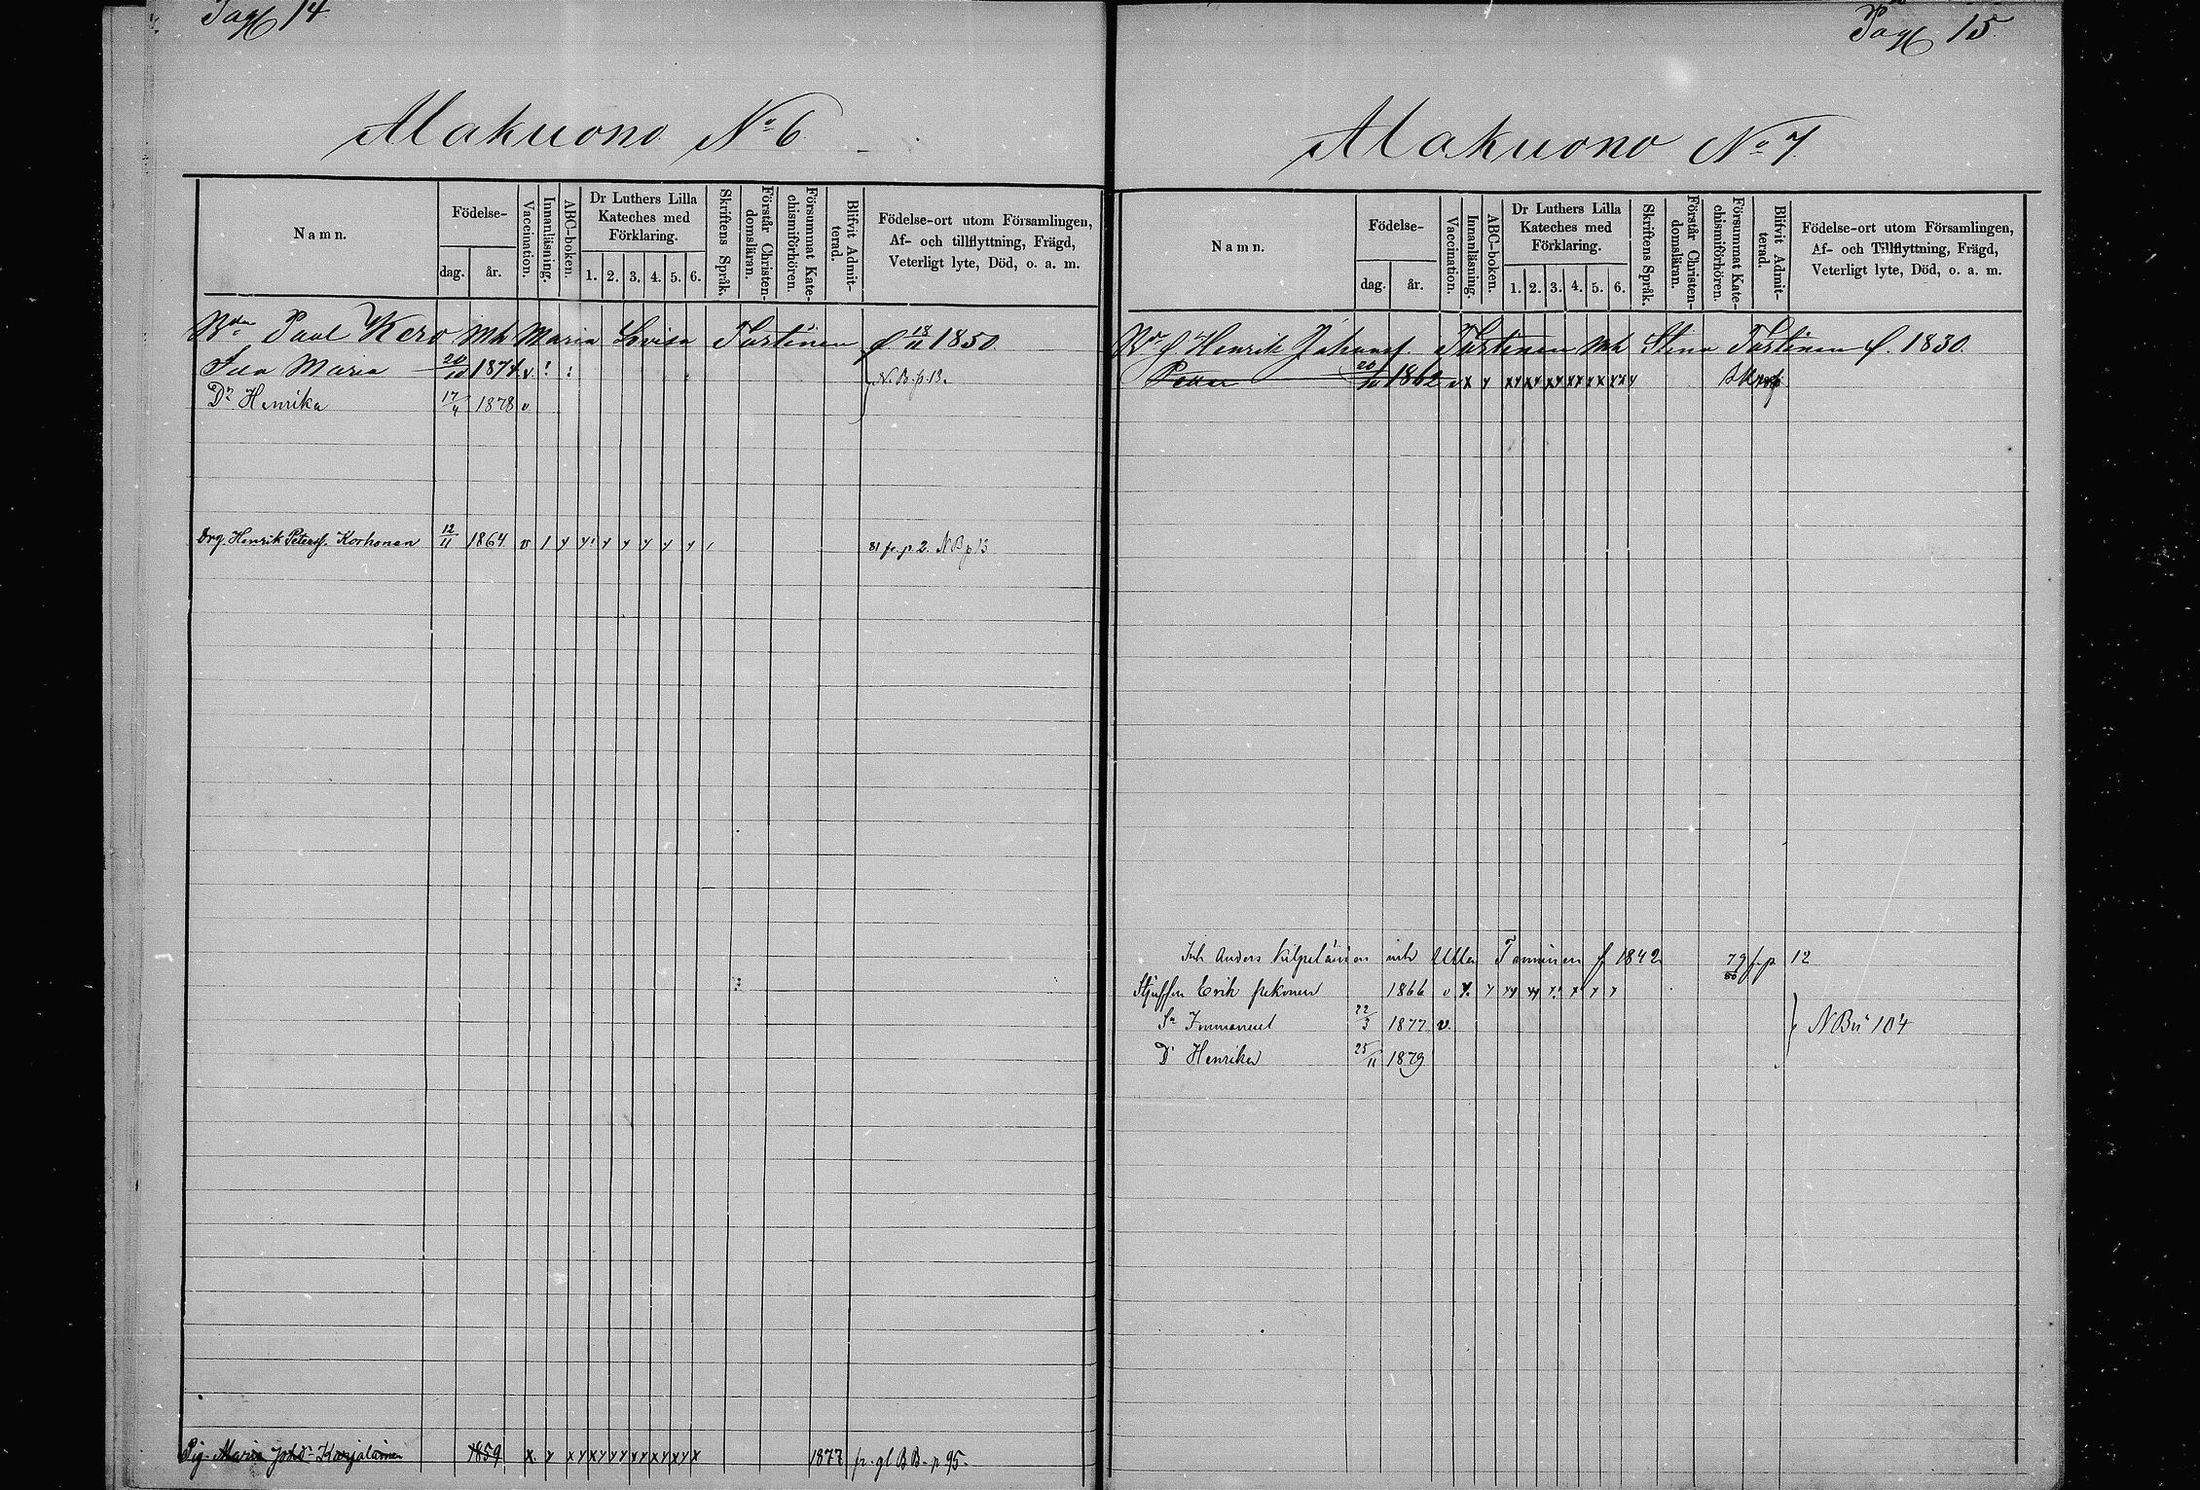 Pag 14
Alakuono No 6
Namn.
Födelse-
dag.
år.
Vaccination.
Innanläsning.
ABC-boken.
Dr Luthers Lilla
Kateches med
Förklaring.
1. 2. 3. 4. 5. 6.
Skriftens Språk.
Förstår Christen-
domsläran.
Försummat Kate-
chismiförhören.
Blifvit Admit-
terad.
Födelse-ort utom Församlingen,
Af- och tillflyttning, Frägd,
Veterligt lyte, Död, o. a. m.
Paul Kero Mh Maria Lovisa Turtinen f 18/11 1850
Maria 1874 v
N.B. p. 13.
Dr Henrika 17/4 1878 v
Drg. Henrik Petersf. Korhonen 12/11 1864 v 1 y y y y y y y 81 fr. p 2. NB p 13
Pig. Maria Johsdr Karjalainen 1859 x y xy xy yy xy xy xy x 1877 fr. gl BB. p 95.
Pag 15
Alakuono No 7.
Namn.
Födelse-
dag.
år.
Vaccination.
Innanläsning.
ABC-boken.
Dr Luthers Lilla
Kateches med
Förklaring.
1. 2. 3. 4. 5. 6.
Skriftens Språk.
Förstår Christen-
domsläran.
Försummat Kate-
chismiförhören.
Blifvit Admit-
terad.
Födelse-ort utom Församlingen,
Af- och Tillflyttning, Frägd,
Veterligt lyte, Död, o. a. m.
Henrik Johansf. Turtinen Mh Stina Turtinen f. 1830.
Petter 20/10 1862 v x y xy xy xy xx yx yxy
Inh Anders Kilpeläinen mh Ulla Tanninen f 1842 79/80 fr p 12
Styffson Erik Pekonen 1866 v x y xy xy x x y y
Sn Immanuel 22/3 1877 v.
NB 104
Dr Henrika 25/11 1879